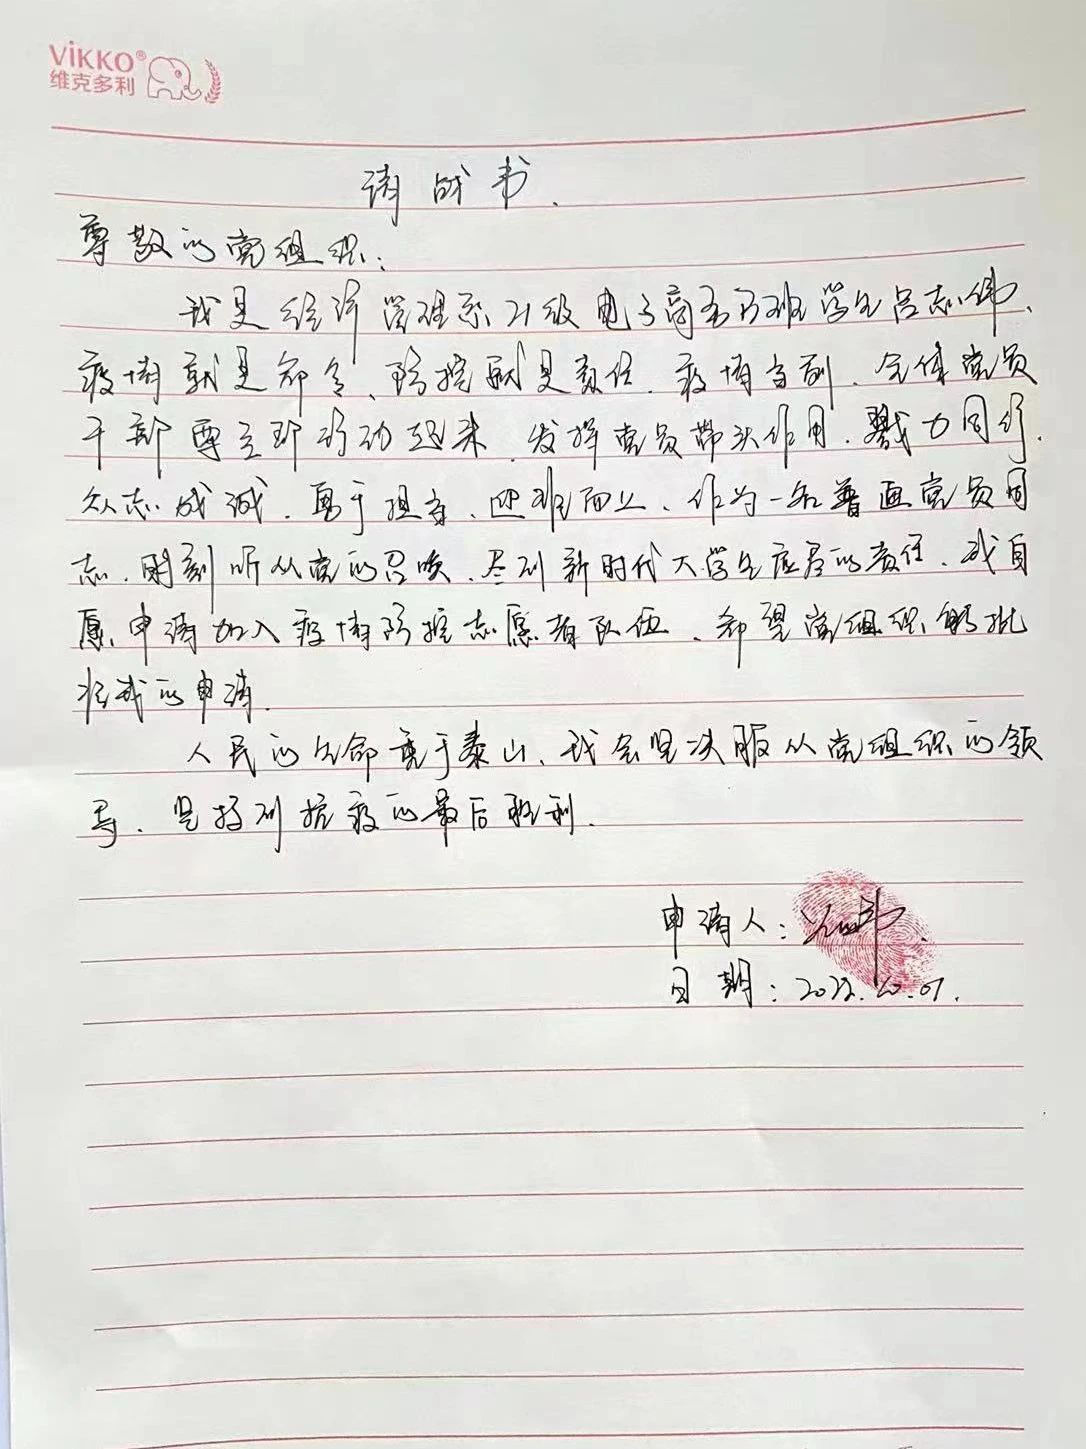 ViKKO®
维克多利
请战书.
尊敬的党组织:
我是经济管理系21级电子商务万班学生吕志伟.
疫情就是命令、防控就是责任.疫情当前.全体党员
干部要立即行动起来.发挥党员带头作用.戮力同行.
众志成诚.勇于担当、迎难而上、作为一名普通党员同
志.时刻听从党的召唤.尽到新时代大学生应尽的责任.我自
愿申请加入疫情防控志愿者队伍、希望党组织能批
准我的申请.
人民的生命重于泰山、我会坚决服从党组织的领
导.坚持到抗疫的最后胜利.
申请人:
日期:2022.10.01.